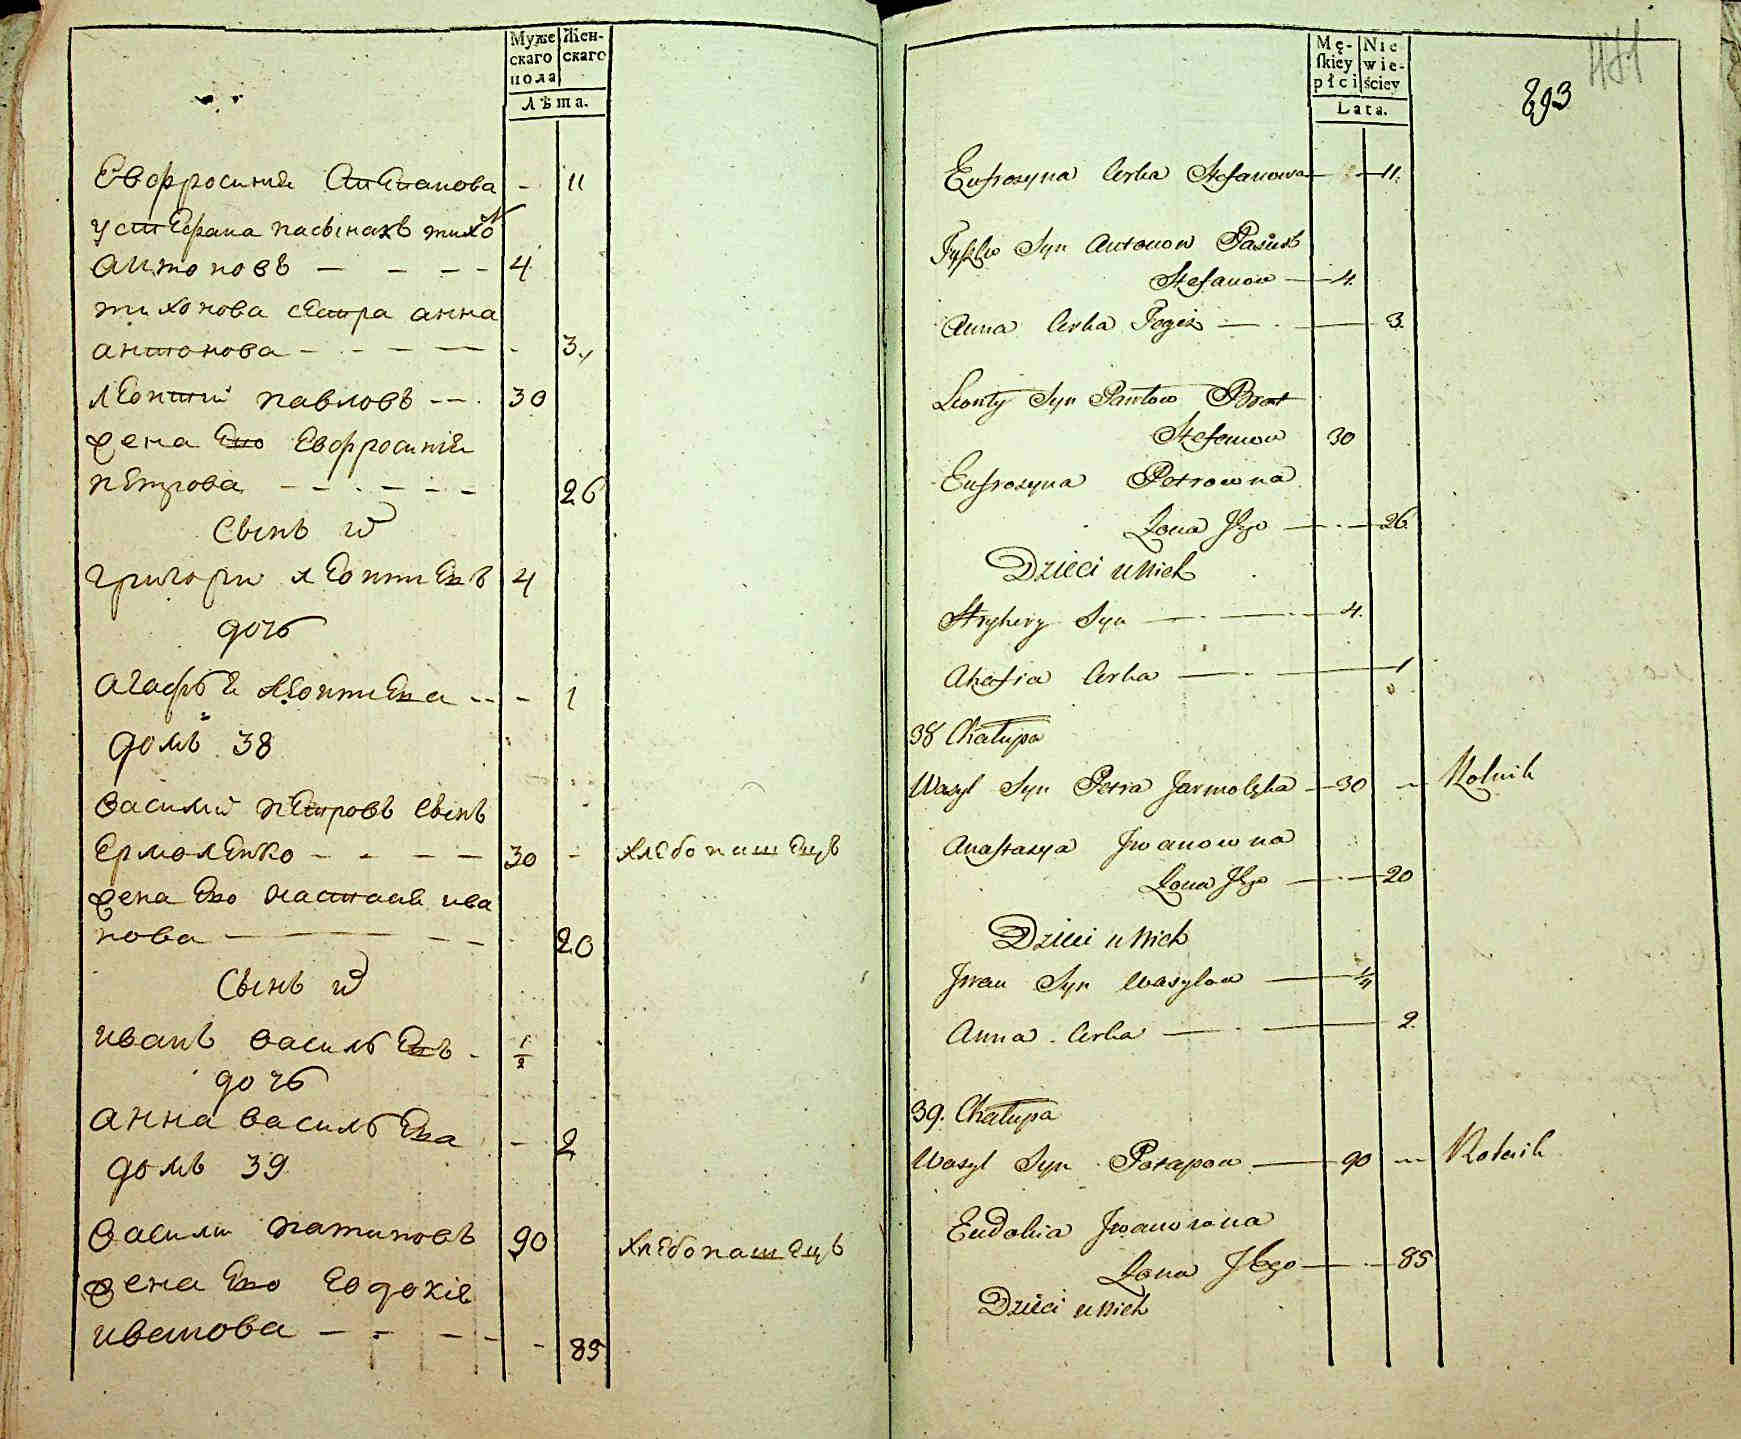 Муже
скаго
пола
Жен-
скаго
Лѣта.
Евфросинія Степанова - 11
у Стефана пасынакъ тихо
антоновъ - - - - 4
тихонова сестра анна
антонова - - - - - 3
леонтий павловъ - - 30
жена его Евфросиния
петрова - - - - - 26
Сынъ
григори леонтиевъ 4
дочь
агафья леонтиева - - - 1
домъ 38
василий петровъ сынъ
Ермоленко - - - - 30 - хлебопашецъ
жена его настасия ива
нова - - - - 20
Сынъ
иванъ васильевъ - 1/2
дочь
анна васильева - 2
домъ 39
василии 90 хлебопашецъ
жена его Евдокия
иванова - - - - - 85
Mę-
skiey
płci
Nie
wie-
ściey
Lata.
893
Eufrozyna Corka Stefanowa 11.
Syn Antonow Pasierb
Stefanow 4.
Anna Corka Tegoż 3.
Leonty Syn Pawłow Brat
Stefanow 30
Eufrozyna Petrowna
Żona Jego 26.
Dzieci u Nich
Hryhory Syn 4.
Ahafia Corka 1
38 Chałupa
Wasyl Syn Petra Jarmolenka 30 - Rolnik
Anastazya Jwanowna
Żona Jego 20
Dzieci u Nich
Jwan Syn Wasylow 1/4
Anna Corka 2.
39. Chałupa
Wasyl Syn Potapow 90 - Rolnik
Eudokia Jwanowna
Żona Jego 85
Dzieci u Nich